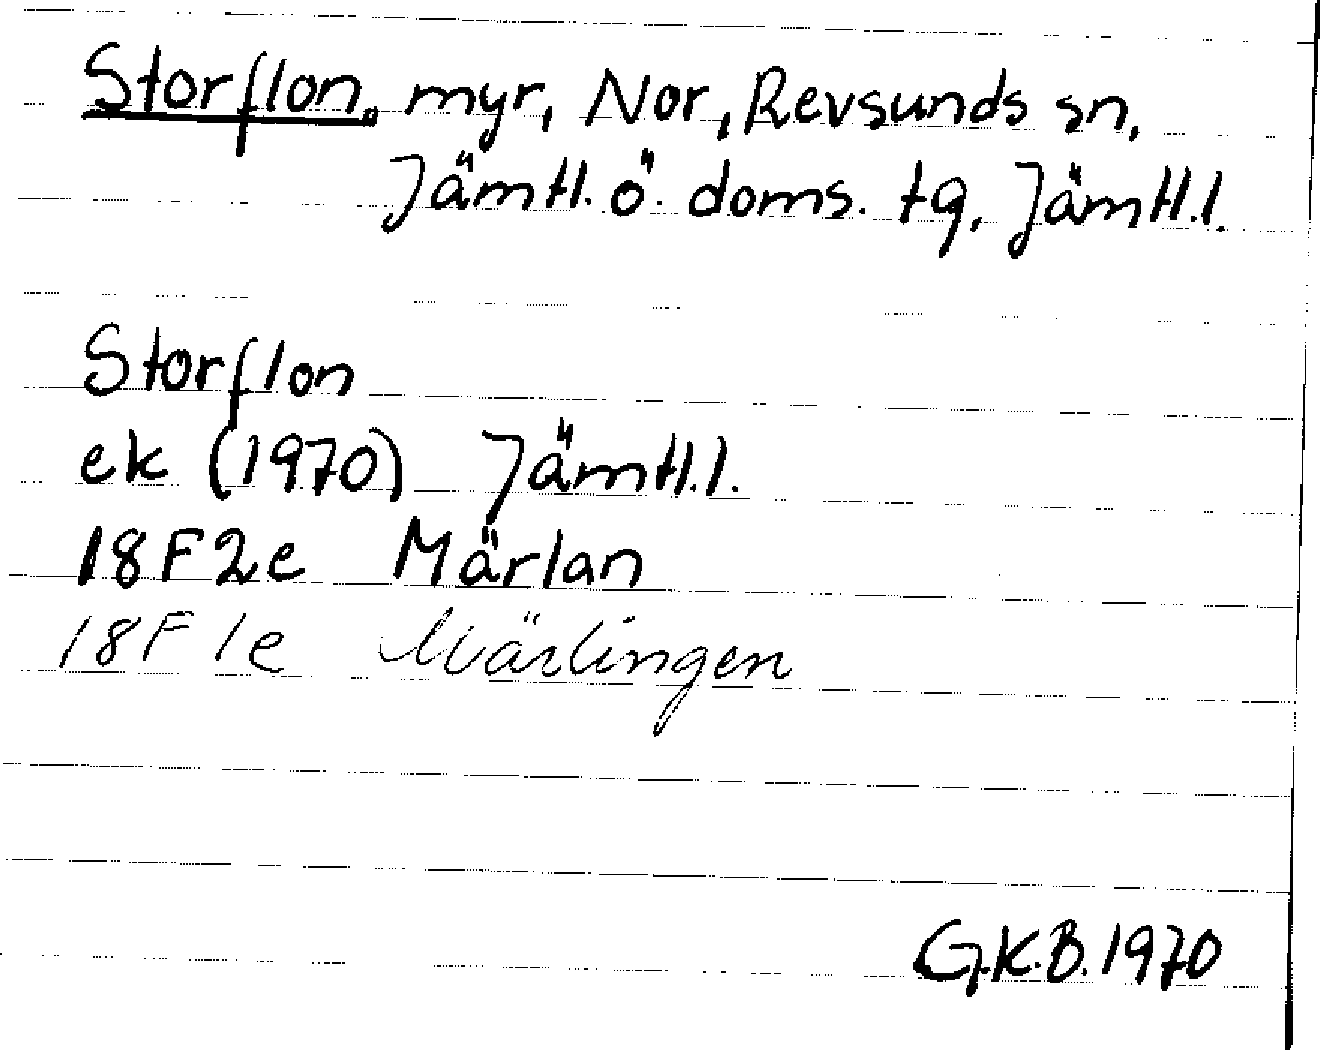 Storflon, myr, Nor, Revsunds sn,
Jämtl. ö. doms. tg, Jämtl.l.
Storflon
ek (1970) Jämtl.l.
18F2e Märlan
18F1e Märlingen
G.K.B. 1970